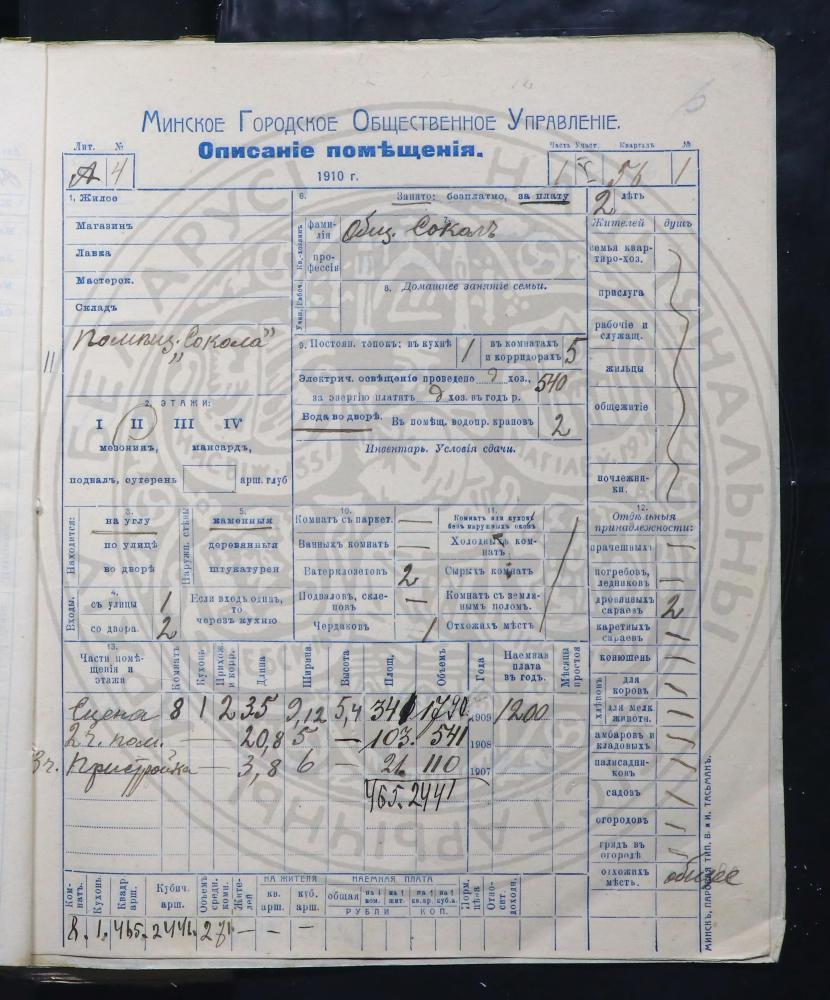 Минское Городское Общественное Управленіе.
Описаніе помѣщенія.
1910 г.
Лит. №
А 4
Часть Участ. Кварталъ №
1 56 1
1. Жилое
Магазинъ
Лавка
Мастерск.
Складъ
"Сокола"
2. ЭТАЖИ:
I II III IV
мезонин, мансард,
подвал, сутерень арш. глуб
6. Занято: безплатно, за плату 2 лѣтъ
Кв.-хозяинъ
фамилія
Общ. Соколъ
профессія
Учащ. Рабоч.
8. Домашнее занятіе семьи.
9. Постоян. топокъ: въ кухнѣ 1 въ комнатахъ и корридорахъ 5
Электрич. освѣщеніе проведено хоз., 540
за энергію платить хоз. въ годъ р.
Вода во дворѣ. Въ помѣщ. водопр. крановъ 2
Инвентарь. Условія сдачи.
Жителей душъ
семья квартиро-хоз.
прислуга
рабочіе и служащ.
жильцы
общежитіе
ночлежники.
Находится:
3.
на углу
по улицѣ
во дворѣ
Наружн. стѣны
5.
каменныя
деревянныя
штукатурен
Входы.
4.
съ улицы 1
со двора. 2
Если входъ одинъ, то черезъ кухню
10.
Комнатъ съ паркет.
Ванныхъ комнатъ
Ватерклозетовъ 2
Подваловъ, склеповъ
Чердаковъ 1
11.
Комнатъ или кухонь безъ наружныхъ оконъ
Холодныхъ комнатъ
Сырыхъ комнатъ
Комнатъ съ землянымъ поломъ.
Отхожихъ мѣстъ
12.
Отдѣльныя принадлежности:
прачешныхъ
погребовъ, ледниковъ
дровяныхъ сараевъ 2
каретныхъ сараевъ
конюшень
хлѣвовъ
для коровъ
для мелк. животн.
амбаровъ и кладовыхъ
палисадниковъ
садовъ
огородовъ
грядъ въ огородѣ
отхожихъ мѣстъ. общее
13.
Части помѣщенія и этажи
Комнатъ Кухонь Прихож. и корр. Длина Ширина Высота Площ. Объемъ Года Наемная плата въ годъ. Мѣсяцы простоя
Сцена 8 1 2 35 9,12 5,4 341 1790. 1909 1200
2 ч. пом. — 20,8 5 — 103. 541 1908
3 ч. Пристройка — 3,8 6 — 21 110 1907
465. 2441
Комнатъ. Кухонь Квадр. арш. Кубич. арш. Объемъ средн. комн. Жителей
НА ЖИТЕЛЯ
кв. арш. куб. арш.
НАЕМНАЯ ПЛАТА
общая на 1 ком. на 1 жит. на 1 кв.ар. на 1 куб.а.
РУБЛИ КОП.
Норм. цѣ-а Относит. доходн.
8. 1. 465. 2441. 271 — — —
МИНСКЪ, ПАРОВАЯ ТИП. В. и И. ТАСЬМАНЪ.